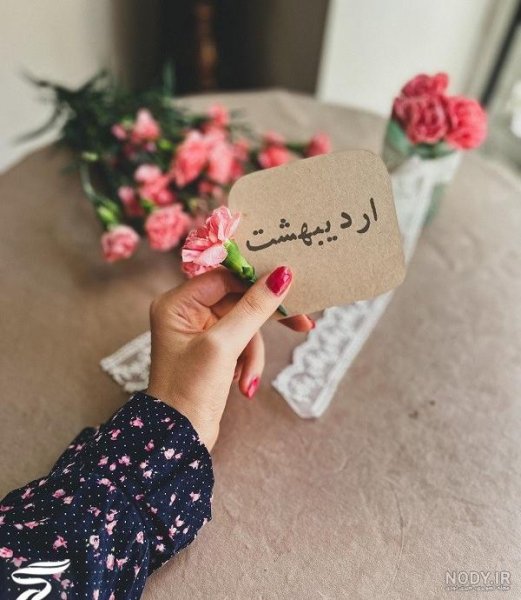 اردیبهشت
NODY.IR